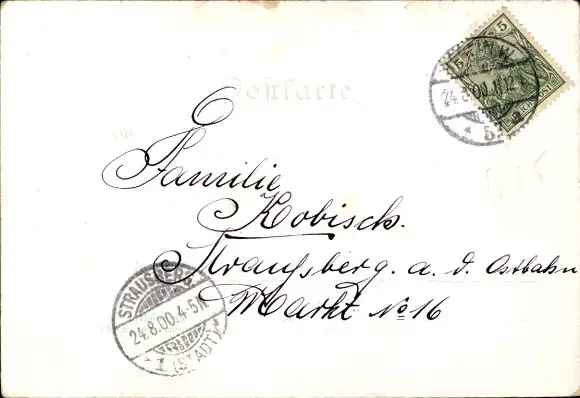 Postkarte
5
24.8.00.11-12
Familie
Kobisch.
Straußberg. a. d. Ostbahn
Markt No 16
STRAUSBERG
24.8.00.4-5N
* 1 (STADT) *